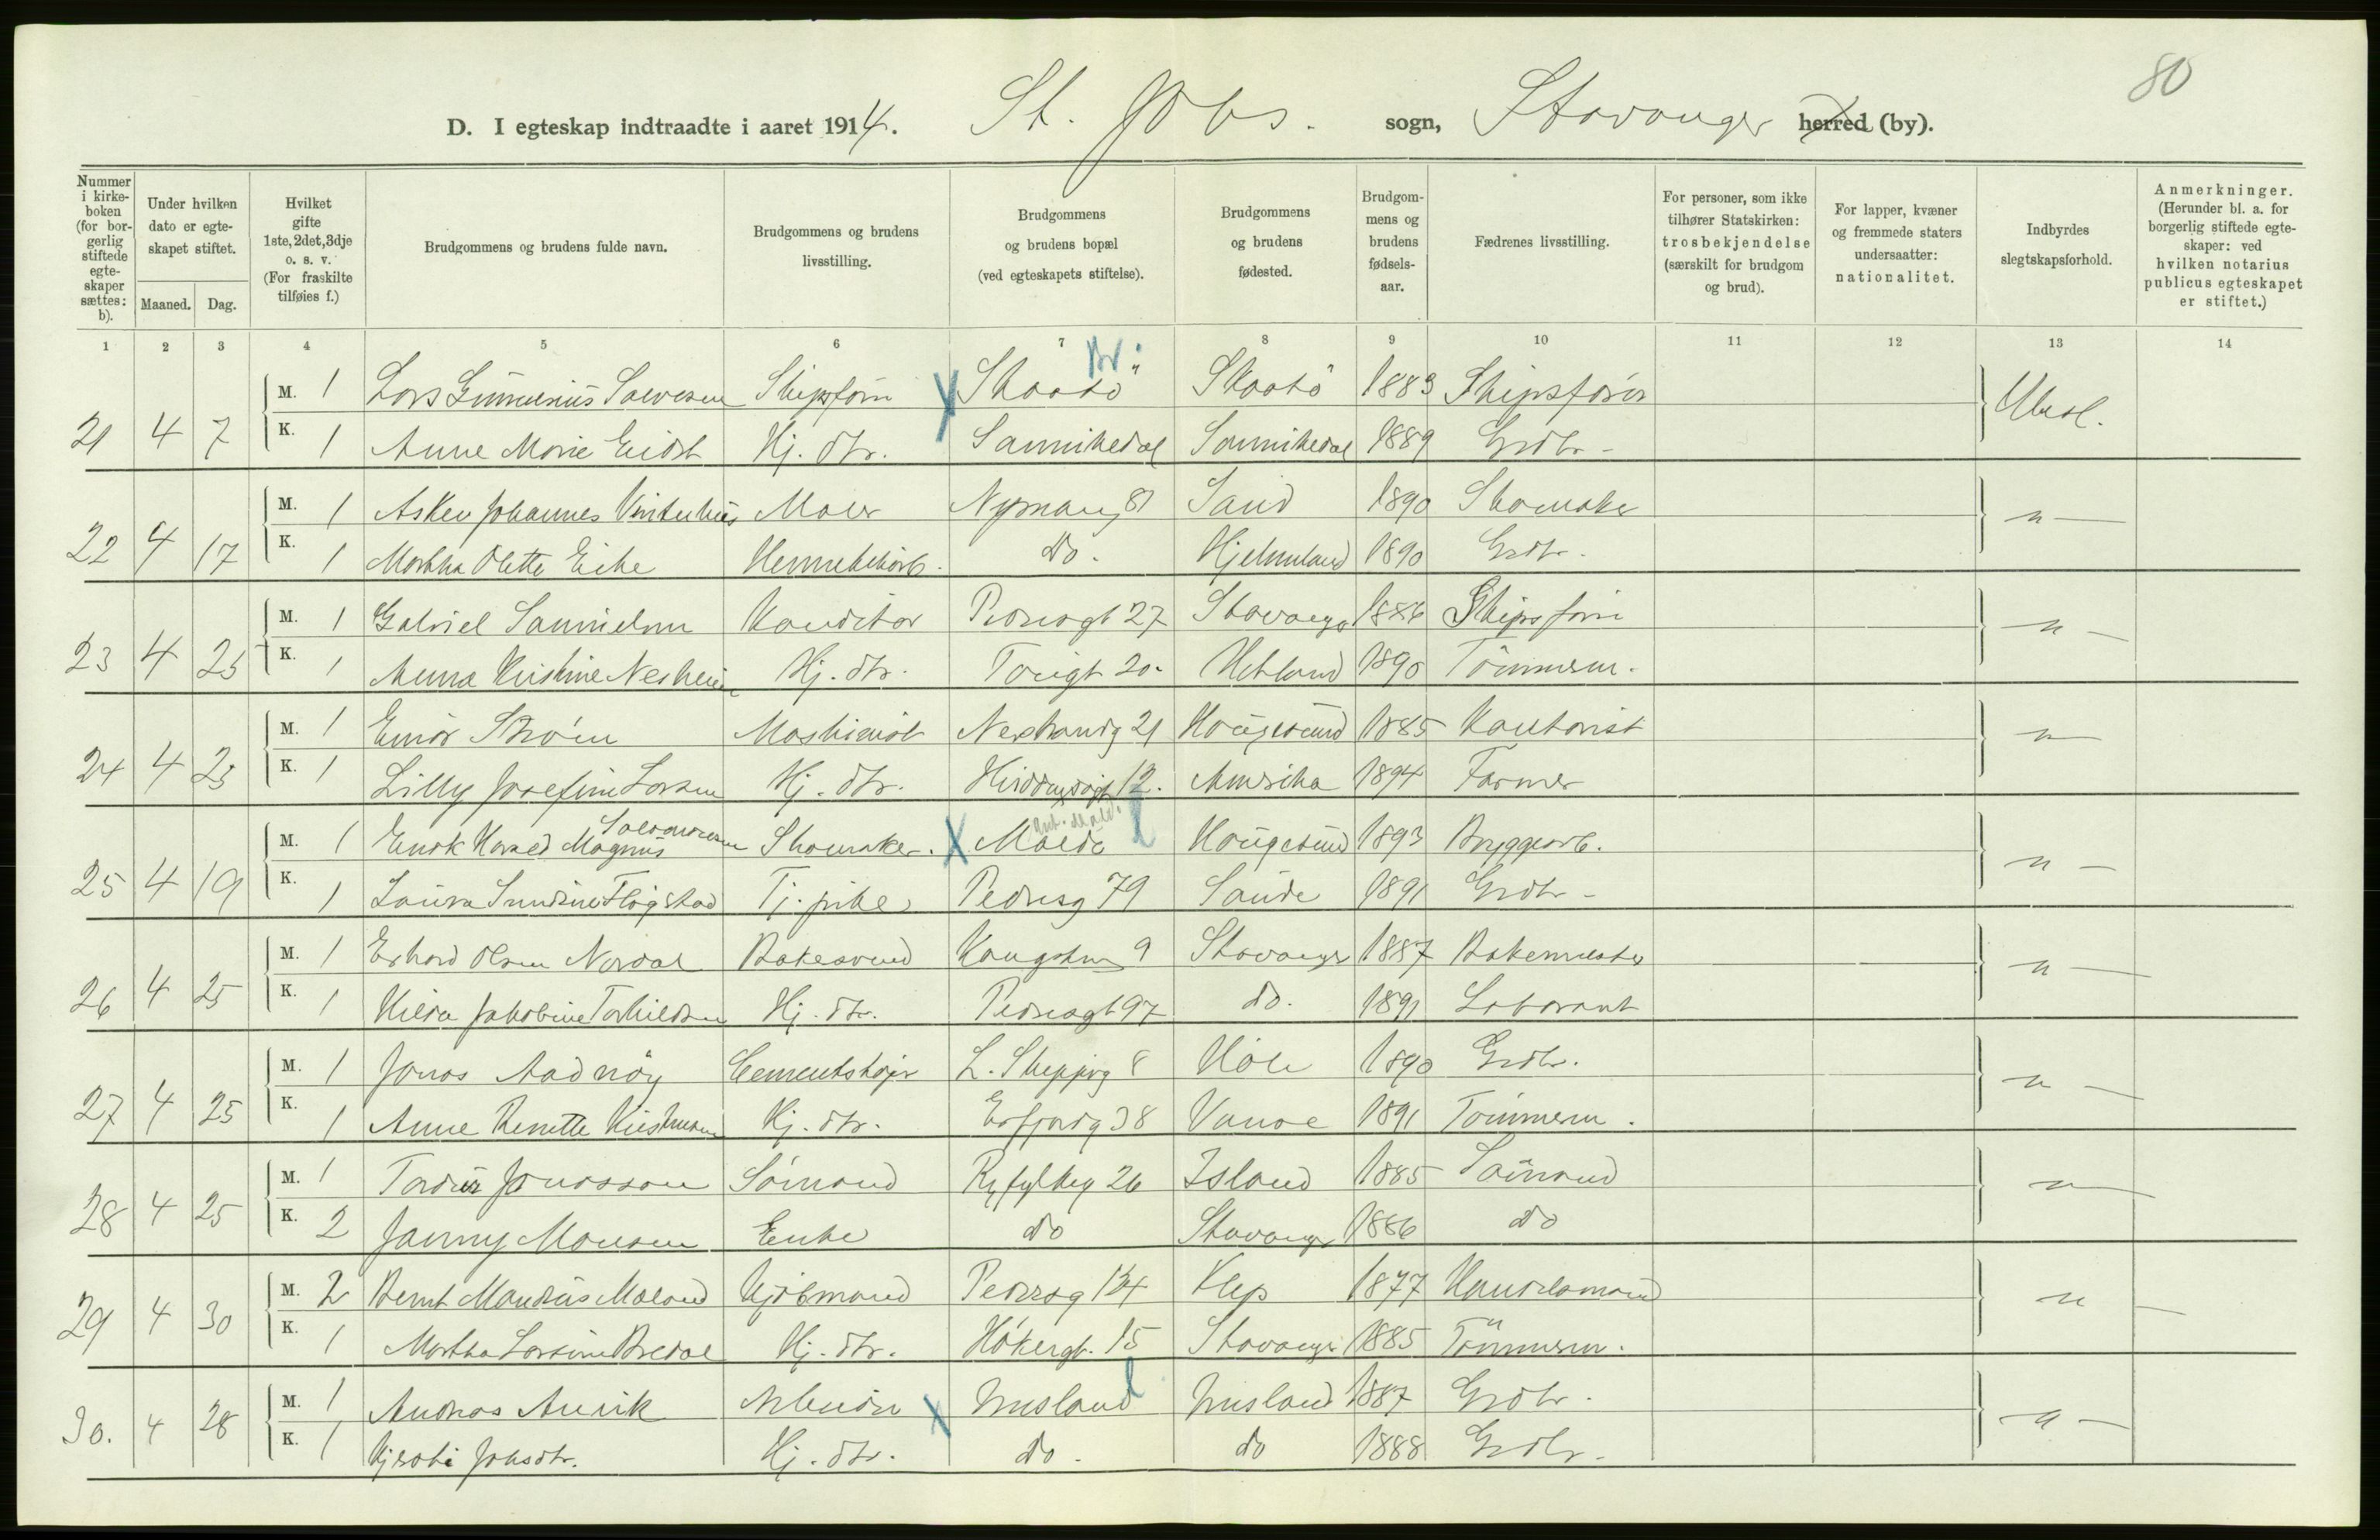 80
D. I egteskap indtraadte i aaret 1914. St. Johs. sogn, Stavanger herred (by).
Nummer i kirkeboken (for borgerlig stiftede egteskaper sættes: b).
Under hvilken dato er egteskapet stiftet.
Maaned. Dag.
Hvilket gifte 1ste, 2det, 3dje o. s. v. (For fraskilte tilføies f.)
Brudgommens og brudens fulde navn.
Brudgommens og brudens livsstilling.
Brudgommens og brudens bopæl (ved egteskapets stiftelse).
Brudgommens og brudens fødested.
Brudgommens og brudens fødselsaar.
Fædrenes livsstilling.
For personer, som ikke tilhører Statskirken: trosbekjendelse (særskilt for brudgom og brud).
For lapper, kvæner og fremmede staters undersaatter: nationalitet.
Indbyrdes slegtskapsforhold.
Anmerkninger. (Herunder bl. a. for borgerlig stiftede egteskaper: ved hvilken notarius publicus egteskapet er stiftet.)
1 2 3 4 5 6 7 8 9 10 11 12 13 14
M. 1 Lars Salvesen Skipsfører Skaatö Skaatö 1883 Skipsfører Ubesl.
21 4 7 K. 1 Anne Marie Eidet Hj. dtr. Sannikedal Sannikedal 1889 Grdbr.
M. 1 Asken Johannes Vinterhus Maler Nymansg 81 Sand 1890 Skomaker "
22 4 17 K. 1 Martha Olette Eike do. Hjelmeland 1890 Grdbr.
M. 1 Gabriel Samuelsen Konditor Pedersgt 27 Stavanger 1886 Skipsfører "
23 4 25 K. 1 Anna Kristine Nesheim Hj. dtr. Torvgt 20. Hetland 1890 Tömmerm.
M. 1 Einar Ström Maskinist 21 Haugesund 1885 Kontorist "
24 4 23 K. 1 Lilly Josefine Larsen Hj. dtr. 12. Amerika 1894 Farmer
M. 1 Enok Harald Magnus Salomonsen Skomaker. Molde Haugesund 1893 Bryggearb. "
25 4 19 K. 1 Laura Flögstad Tj. pike Pedersg 79 Saude 1891 Grdbr
M. 1 Erhard Olsen Nordal Bakersvend Kongstensg 9 Stavanger 1887 Bakermester "
26 4 25 K. 1 Hilda Jakobine Torkildsen Hj. dtr. Pedersgt 97 do. 1891 Laborant
M. 1 Jonas Aadnöy Cementstöper L. Skippirg 8 Höle 1890 Grdbr. "
27 4 25 K. 1 Anne Renette Kristensen Hj. dtr. Erfjordg 38 Vanse 1891 Tömmerm.
M. 1 Jonasson Sömand Ryfylkeg 26 Island 1885 Sömand "
28 4 25 K. 2 Janny Monsen Enke do Stavanger 1886 do
M. 2 Bernt Maudius Maland Kjöbmand Pedersg 134 Klep 1877 Handelsmand "
29 4 30 K. 1 Martha Larsine Bredal Hj. dtr. Hökergt. 15 Stavanger 1885 Tömmerm.
M. 1 Andreas Anvik Arbeider Imsland Imsland 1887 Grdbr. "
30. 4 28 K. 1 Kjersti Johsdtr. Hj. dtr. do. do 1888 Grdbr.